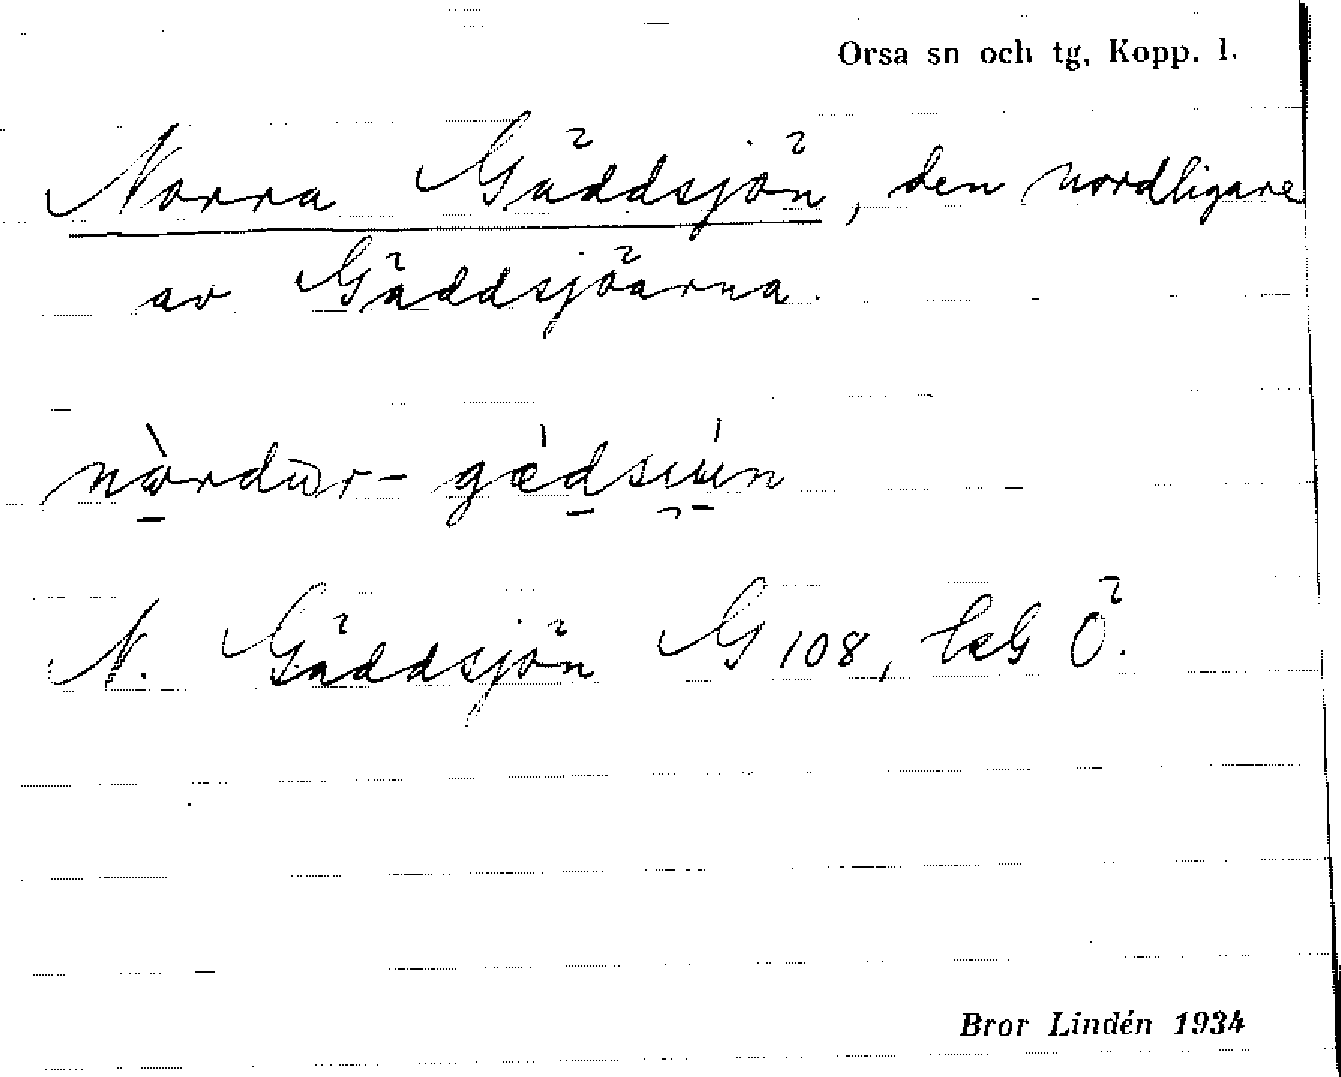 Orsa sn och tg, Kopp. l.
Norra Gäddsjön, den nordligare
av Gäddsjöarna.
N. Gäddsjön G 108, bsG Ö.
Bror Lindén 1934